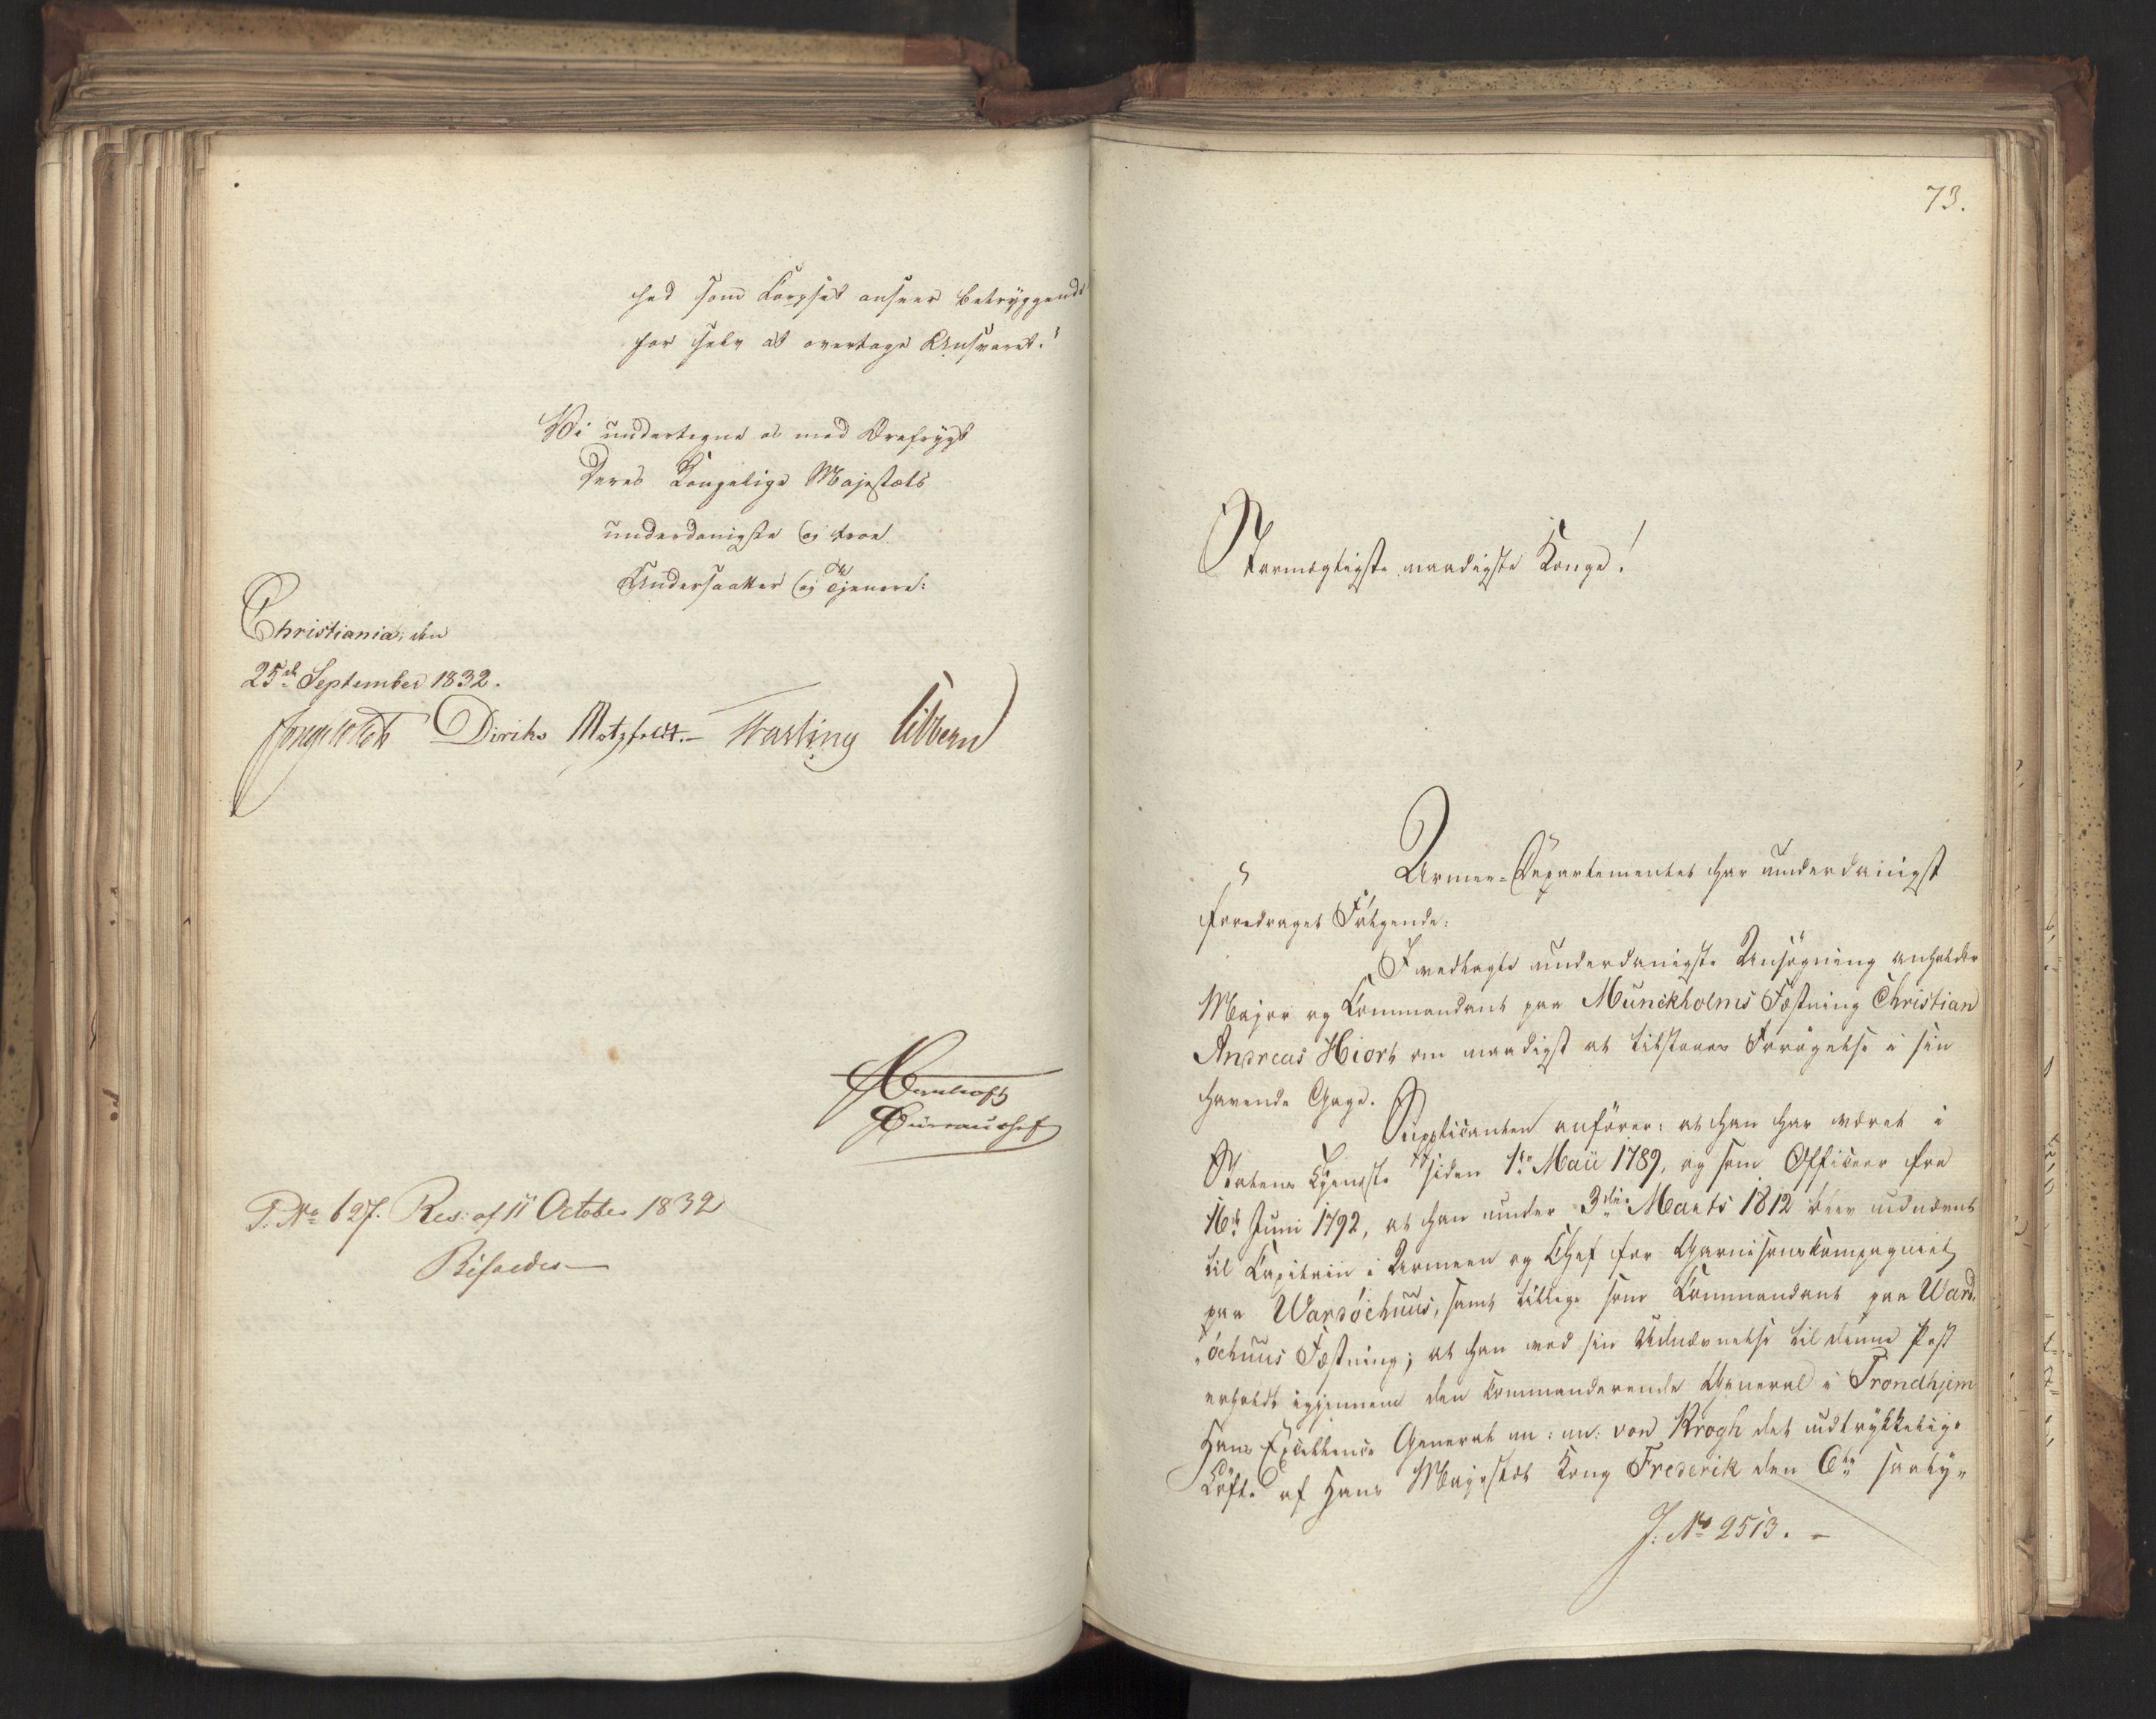 hed som Corpset anseer betryggende
for selv at overtage Ansvaret."
Vi undertegne os med Ærefrygt
Deres Kongelige Majestæts
underdanigste og troe
Undersaatter og Tjenere:
Christiania, den
25de September 1832.
Diriks Motzfeldt.- Fasting Sibbern
Bureauchef
P. No 627. Res: af 11 October 1832
Bifaldes
73.
Stormægtigste naadigste Konge!
Armee-Departementet har underdanigst
foredraget Følgende:
I vedlagte underdanigste Ansøgning anholder
Major og Commandant paa Munckholms Fæstning Christian
Andreas Hiort om naadigst at tilstaaes Forøgelse i sin
havende Gage.
Supplicanten anfører: at han har været i
Statens Tjeneste siden 1ste Maii 1789, og som Officeer fra
16de Juni 1792, at han under 3die Marts 1812 blev udnævnt
til Capitain i Armeen og Chef for Garnisonskompagniet
paa Wardöehuus, samt tillige som Commandant paa Ward,
"öehuus Fæstning; at han ved sin Udnævnelse til denne Post
erholdt igjennem den commanderende General i Trondhjem
Hans Excellence General m: m: von Krogh det udtrykkelige
Løfte af Hans Majestæt Kong Frederik den 6te saaly"
J. No 2513. -